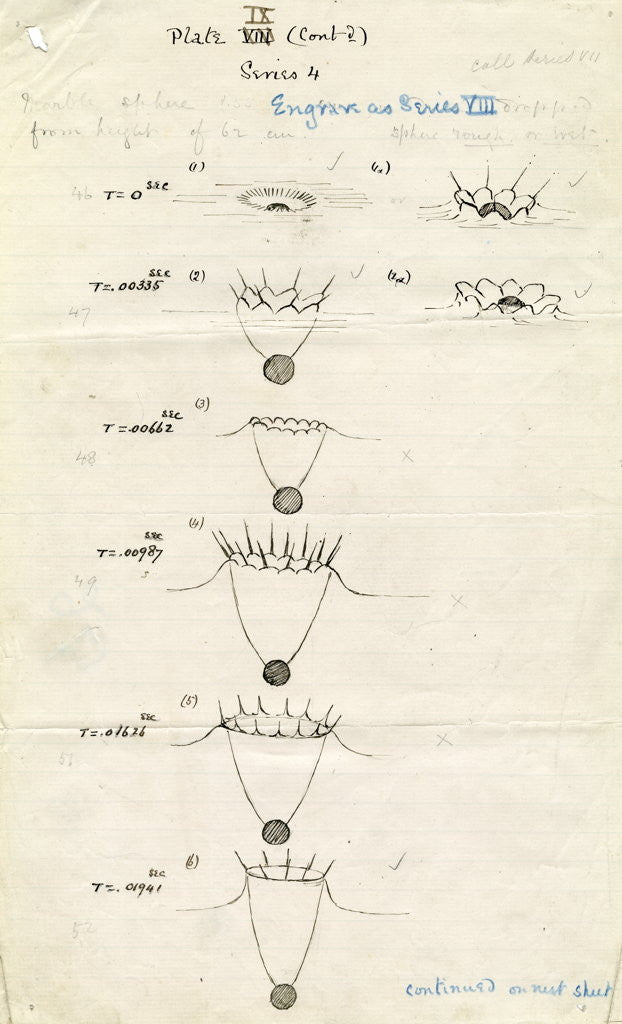 IX
Plate VIII (Cont-d)
Series 4
call Series VII
Engrave as Series VIII
Marble sphere dropped
from height of 62 cm. sphere rough or wet.
(1) (1a)
46 T = 0 sec or
(2) (2a)
T = .00335 sec
47
(3)
T = .00662 sec
48
(4)
T = .00987 sec
49
(5)
T = .01626 sec
51
(6)
T = .01941 sec
52
continued on next sheet